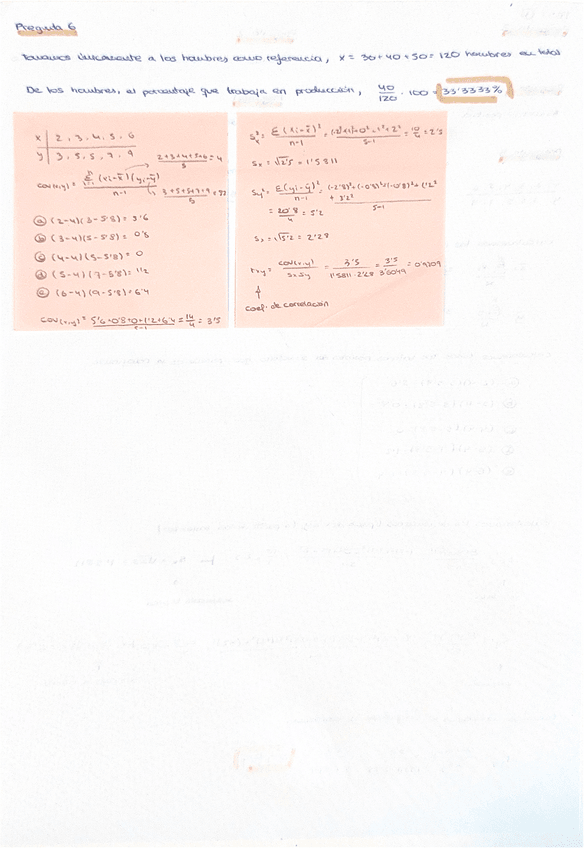 Pregunta 6
Tomamos únicamente a los hombres como referencia, x = 30+40+50 = 120 hombres en total
De los hombres, el porcentaje que trabaja en producción, 40/120 · 100 = 33'3333%
x | 2, 3, 4, 5, 6
y | 3, 5, 5, 7, 9
2+3+4+5+6/5 = 4
cov(x,y) = Σ (xi-x̄)(yi-ȳ) / n-1
3+5+5+7+9/5 =
ⓐ (2-4)(3-5'8) = 5'6
ⓑ (3-4)(5-5'8) = 0'8
ⓒ (4-4)(5-5'8) = 0
ⓓ (5-4)(7-5'8) = 1'2
ⓔ (6-4)(9-5'8) = 6'4
cov(x,y) = 5'6+0'8+0+1'2+6'4 / 5-1 = 14/4 = 3'5
Sx² = Σ(xi-x̄)² / n-1 = / 5-1 = 10/4 = 2'5
Sx = √2'5 = 1'5811
Sy² = Σ(yi-ȳ)² / n-1 = (-2'8)²+(-0'8)²+(-0'8)²+(1'2)² + 3'2² / 5-1
= 20'8/4 = 5'2
= √5'2 = 2'28
rxy = cov(x,y) / Sx·Sy = 3'5 / 1'5811·2'28 = 3'5 / 3'6049 = 0'9709
↑
coef. de correlación